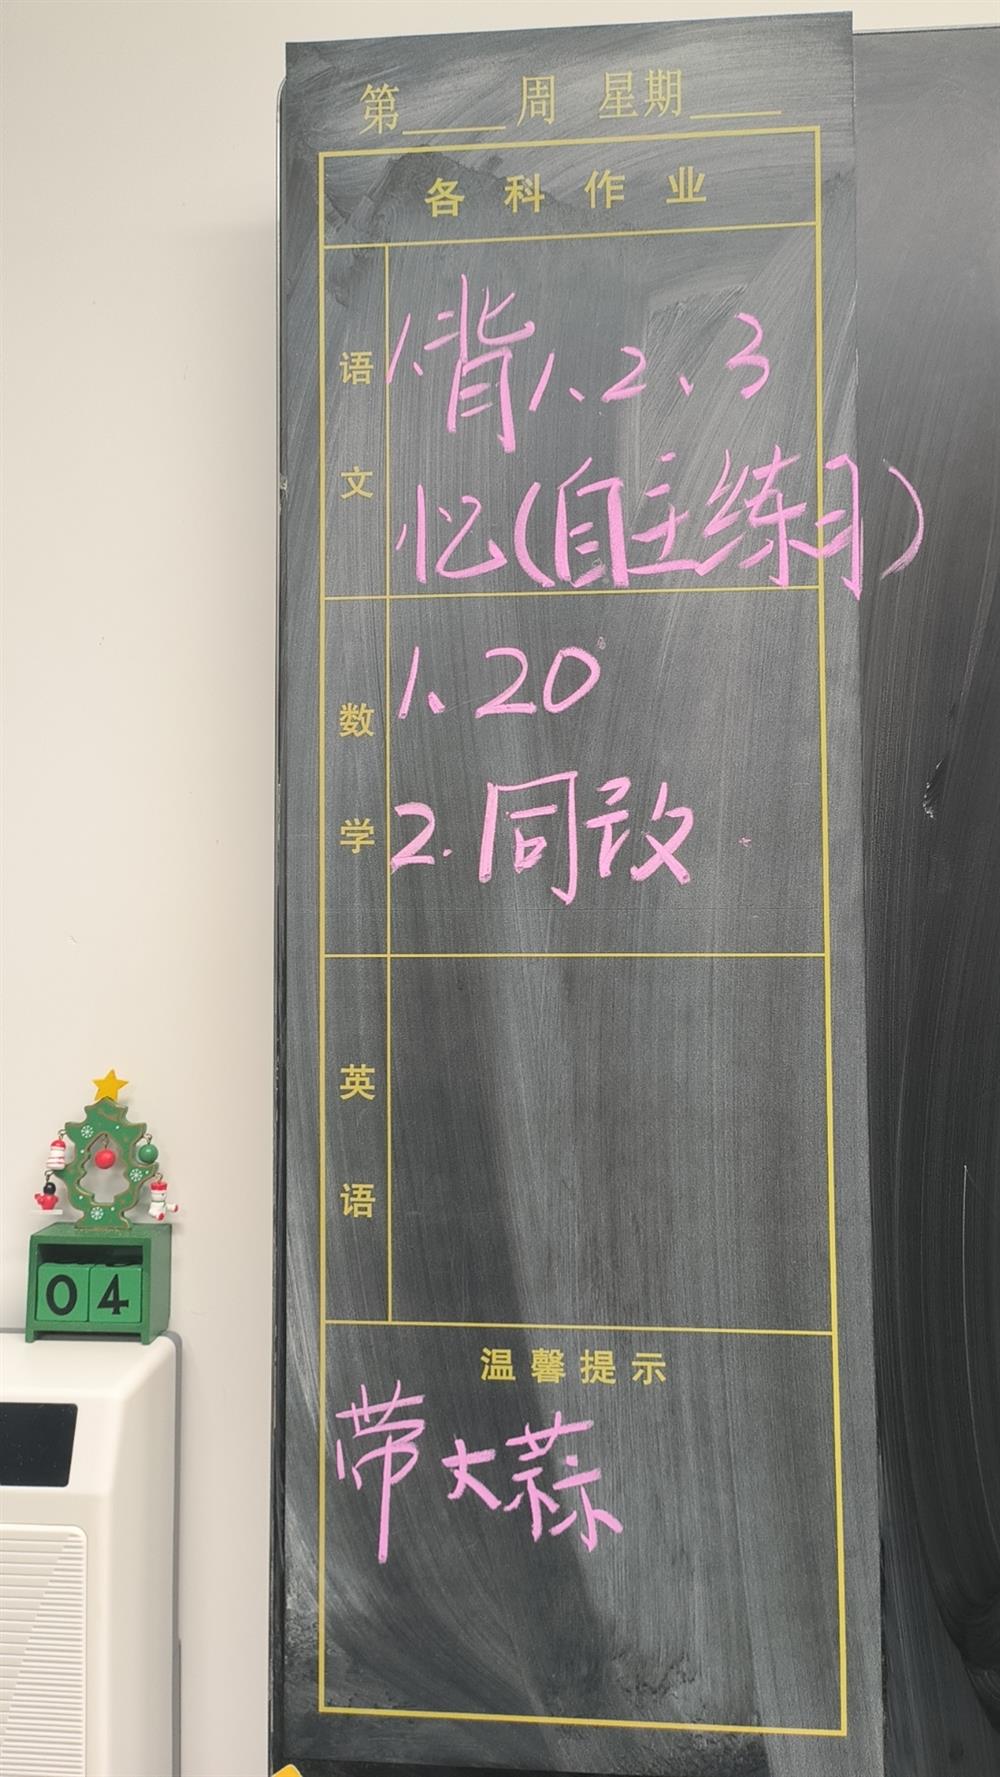 第____周 星期____
各科作业
语文
1.背1、2、3
忆(自主练习)
数学
1、20
2.同改
英语
温馨提示
带大蒜
04